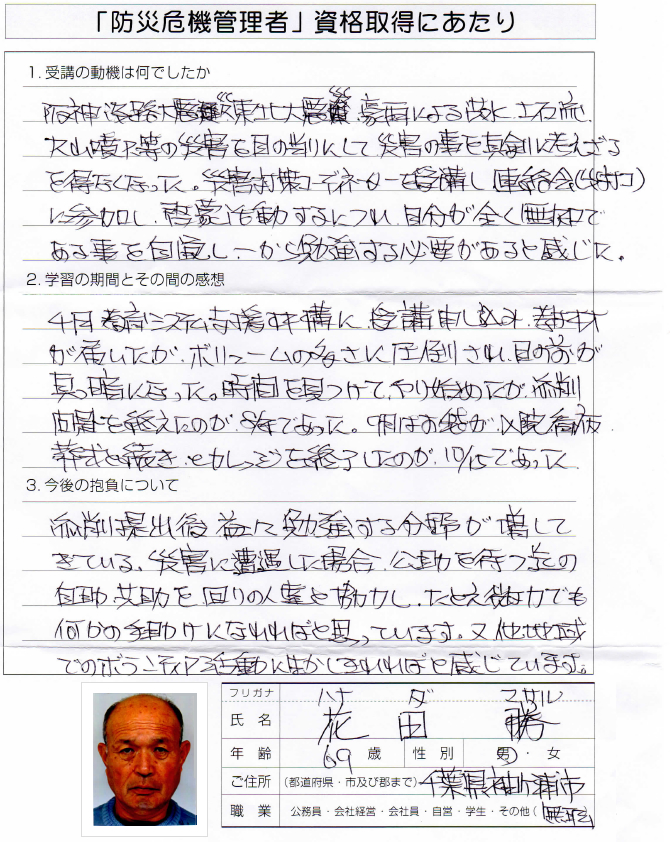 「防災危機管理者」資格取得にあたり
1. 受講の動機は何でしたか
阪神淡路大震災東北大震災、豪雨による洪水、土石流、
火山噴火等の災害を目の当りにして災害の事を真剣に考えざる
を得なくなった。災害対策コーディネーターを受講し、連絡会
に参加し、啓蒙活動するにつれ、自分が全く無知で
ある事を自覚し、一から勉強する必要があると感じた。
2. 学習の期間とその間の感想
4月 教育システム支援機構に、受講申し込み、教材
が届いたが、ボリュームの多さに圧倒され、目の前が
真っ暗になった。時間を見つけて、やり始めたが、添削
問題を終えたのが、であった。お袋が、入院看病、
葬式と続き、カレッジを終了したのが、10/15であった
3. 今後の抱負について
添削提出後、益々勉強する分野が増して
きている。災害に遭遇した場合、公助を待つ迄の
自助、共助を回りの人達と協力し、たとえ微力でも
何かの手助けになれればと思っています。又他地域
でのボランティア活動に生かしきれればと感じています。
フリガナ ハナ ダ マサル
氏 名 花 田 勝
年 齢 69 歳 性 別 男・女
ご住所 (都道府県・市及び郡まで) 千葉県袖ヶ浦市
職 業 公務員・会社経営・会社員・自営・学生・その他(無職)